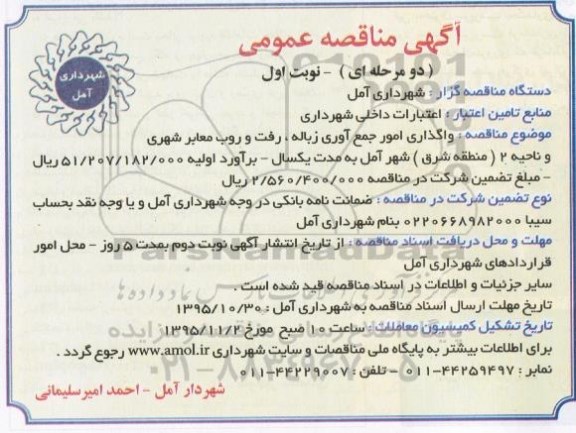 آگهی مناقصه عمومی
( دو مرحله ای ) - نوبت اول
شهرداری
آمل
دستگاه مناقصه گزار : شهرداری آمل
منابع تامین اعتبار : اعتبارات داخلی شهرداری
موضوع مناقصه : واگذاری امور جمع آوری زباله ، رفت و روب معابر شهری
و ناحیه ۲ ( منطقه شرق ) شهر آمل به مدت یکسال - برآورد اولیه ۵۱/۲۰۷/۱۸۲/۰۰۰ ریال
- مبلغ تضمین شرکت در مناقصه ۲/۵۶۰/۴۰۰/۰۰۰ ریال
نوع تضمین شرکت در مناقصه : ضمانت نامه بانکی در وجه شهرداری آمل و یا وجه نقد بحساب
سیبا ۰۲۲۰۶۶۸۹۸۲۰۰۰ بنام شهرداری آمل
مهلت و محل دریافت اسناد مناقصه : از تاریخ انتشار آگهی نوبت دوم بمدت ۵ روز - محل امور
قراردادهای شهرداری آمل
سایر جزئیات و اطلاعات در اسناد مناقصه قید شده است .
تاریخ مهلت ارسال اسناد مناقصه به شهرداری آمل : ۱۳۹۵/۱۰/۳۰
تاریخ تشکیل کمیسیون معاملات : ساعت ۱۰ صبح مورخ ۱۳۹۵/۱۱/۲
برای اطلاعات بیشتر به پایگاه ملی مناقصات و سایت شهرداری www.amol.ir رجوع گردد .
نمابر : ۴۴۲۵۹۴۹۷-۰۱۱ - تلفن : ۴۴۲۲۹۰۰۷-۰۱۱
شهردار آمل - احمد امیرسلیمانی
ParsNamadData
۰۲۱-۸۸۳۴۹۶۷۰-۵